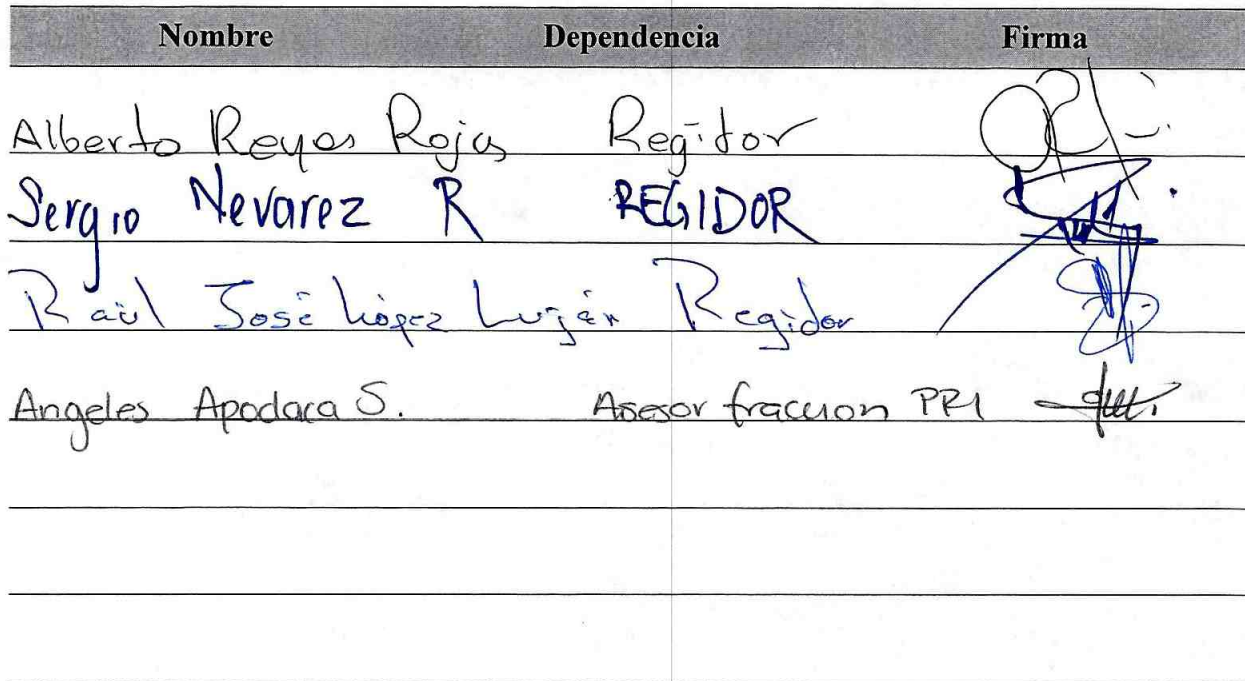 Nombre Dependencia Firma
Alberto Reyes Rojas Regidor
Sergio Nevarez R REGIDOR
Raúl José López Luján Regidor
Angeles Apodaca S. Asesor fraccion PRI